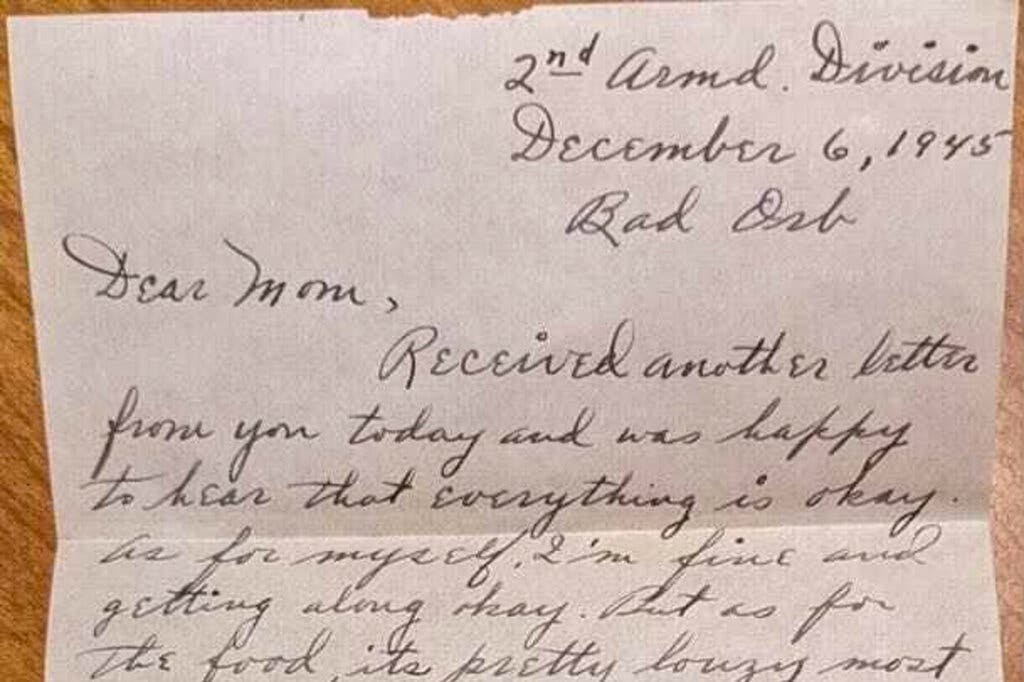 2nd Armd. Division
December 6, 1945
Bad Orb
Dear Mom,
Received another letter
from you today and was happy
to hear that everything is okay.
As for myself, I'm fine and
getting along okay. But as for
the food, its pretty louzy most